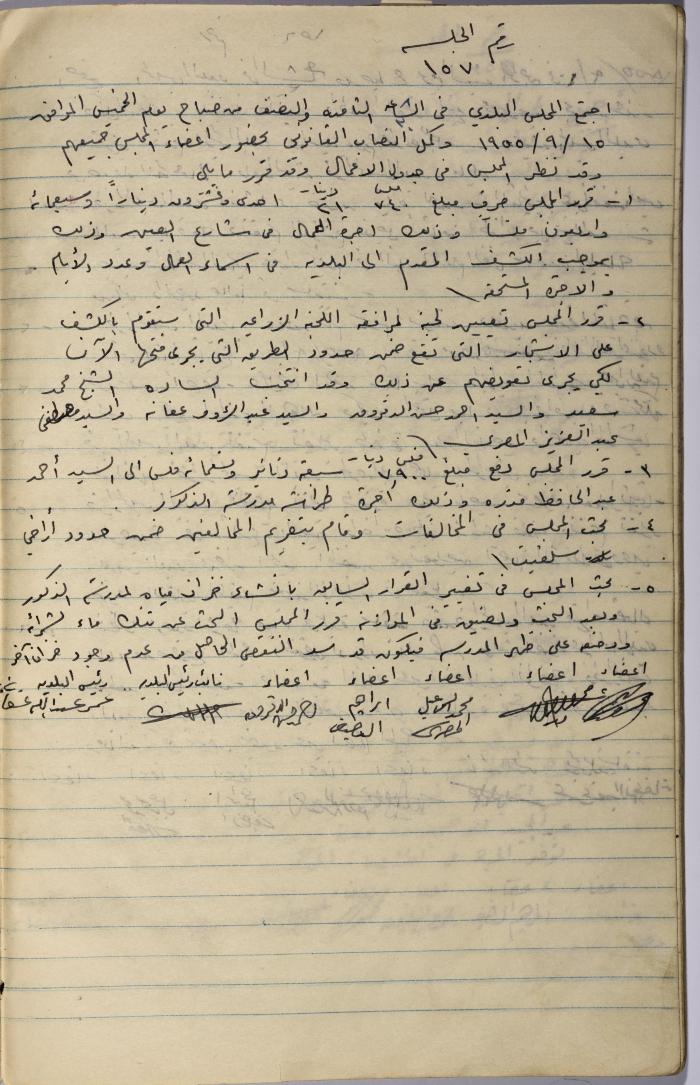 رقم الجلسه
١٥٧
اجتمع المجلس البلدي في الساعه الثامنه والنصف من صباح يوم الخميس الموافق
١٥/٩/١٩٥٥ وكمل النصاب القانوني بحضور اعضاء المجلس جميعهم
وقد نظر المجلس في جدول الاعمال وقد قرر مايلي
١- قرر المجلس صرف مبلغ ٧٤٠ فلس ٢١ دينار احدى وعشرون ديناراً وسبعمائة
واربعون فلساً وذلك اجرة العمال في شارع العين وذلك
بموجب الكشف المقدم الى البلديه في اسماء العمال وعدد الأيام
والاجرة المستحقه \
٢- قرر المجلس تعيين لجنة لمرافقة اللجنه الزراعيه التي ستقوم بالكشف
على الاشجار التي تقع ضمن حدود الطريق التي يجرى فتحها الآن
لكي يجرى تعويضهم عن ذلك وقد انتخب الساده الشيخ محمد
سعيد والسيد احمد حسن الدقروق والسيد عبد الرؤوف عفانه والسيد مصطفى
عبد العزيز المصري \
٣- قرر المجلس دفع مبلغ ٩٠٠ فلس ٧ دينار سبعة دنانير وتسعمائة فلس الى السيد أحمد
عبد الحافظ وذلك اجرة طراشة مدرسة الذكور
٤- بحث المجلس في المخالفات وقام بتغريم المخالفين ضمن حدود أراضي
سلفيت \
٥- بحث المجلس في تغيير القرار السابق بانشاء خزان مياه لمدرسة الذكور
وبعد البحث ولضيق في الموازنة قرر المجلس البحث عن تنك ماء لشرائه
ووضعه على ظهر المدرسه فيكون قد سد النقص الحاصل من عدم وجود خزان آخر
اعضاء اعضاء اعضاء اعضاء اعضاء نائب رئيس البلديه رئيس البلديه
محمد اسماعيل ابراهيم احمد حسن الدقروق عمر عبد الله
المصري